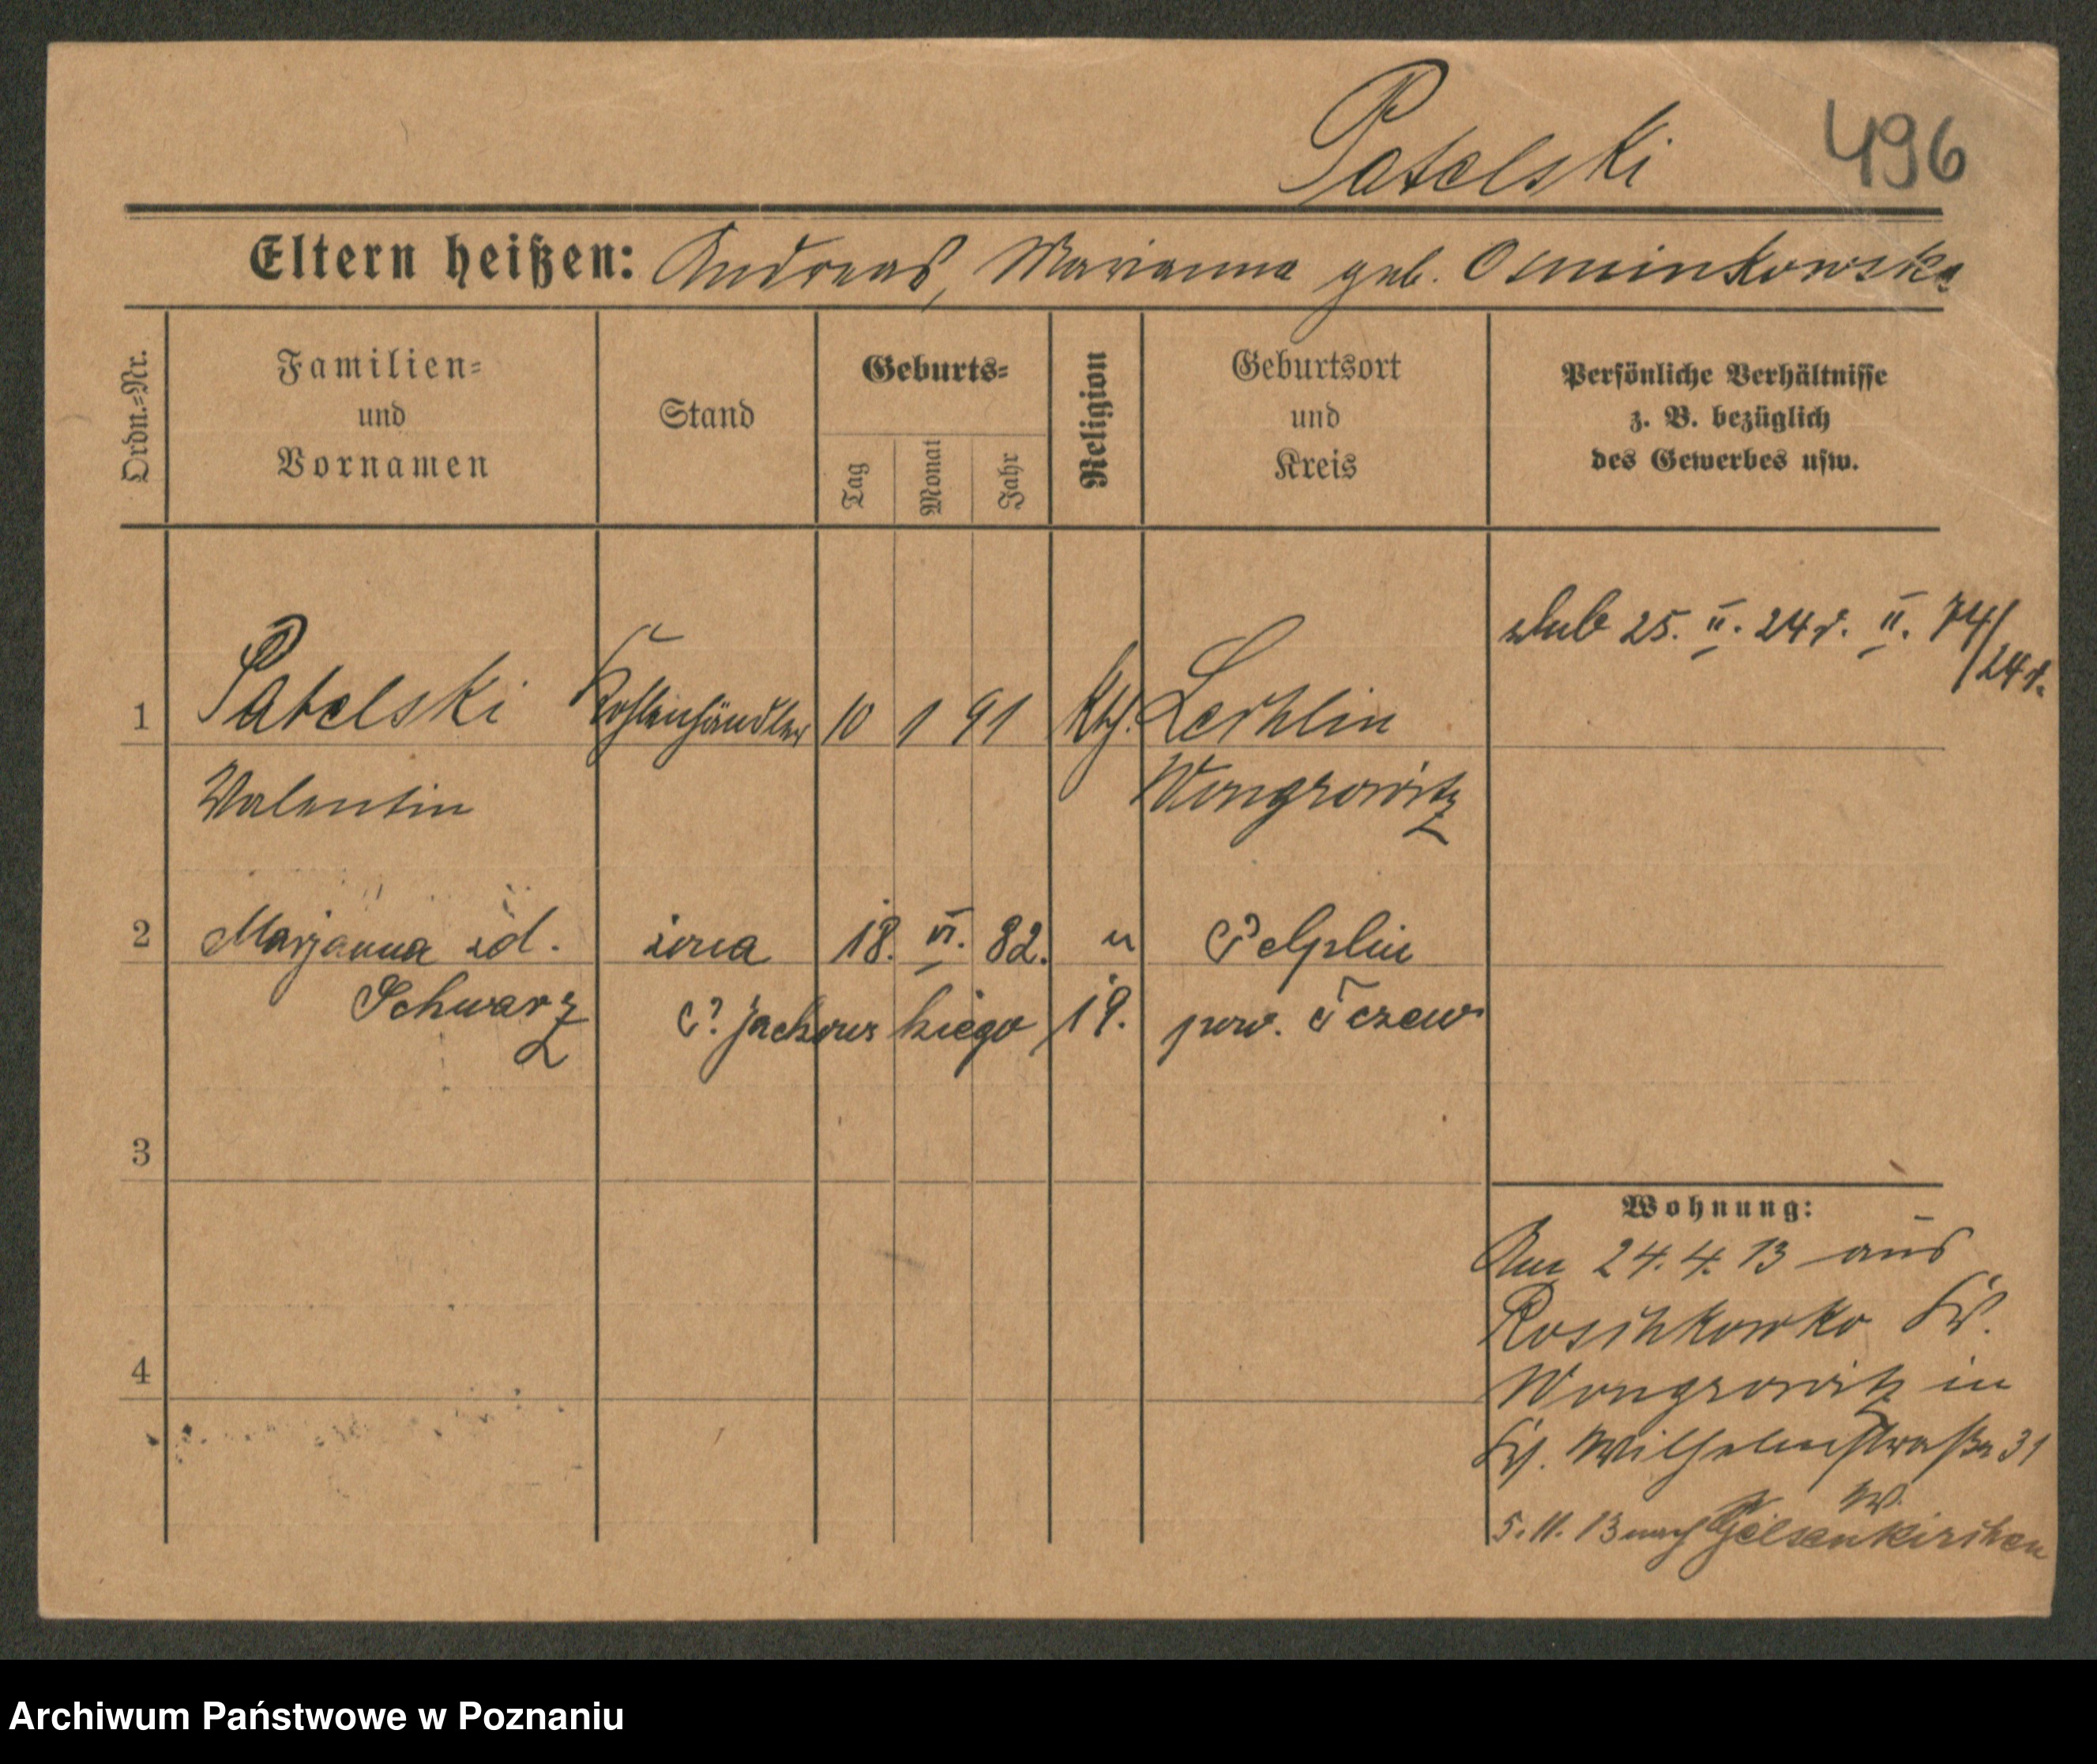 Patelski 496
Eltern heißen: Andreas, Marianna geb. Osminkowska
Ordn.-Nr.
Familien-
und
Vornamen
Stand
Geburts-
Tag
Monat
Jahr
Religion
Geburtsort
und
Kreis
Persönliche Verhältnisse
z. B. bezüglich
des Gewerbes usw.
ślub 25. II. 24 r. II. 74/
/24 r.
1 Patelski Kohlenhändler 10 1 91 kth. Lechlin
Valentin Wongrowitz
2 Marjanna zd. żona 18. VI. 82. " Pelplin
Schwarz P. Jackowskiego 19. pow. Tczew
3
4
Wohnung:
Am 24. 4. 13 aus
Roschkowko Kr.
Wongrowitz in
Wilhelmstraße 31
5. 11. 13 nach Gelsenkirchen
Archiwum Państwowe w Poznaniu